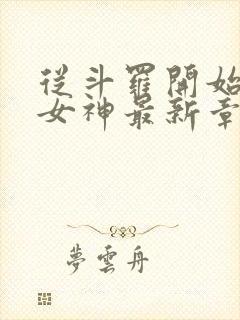 從斗羅開始
女神最新章
夢雲舟